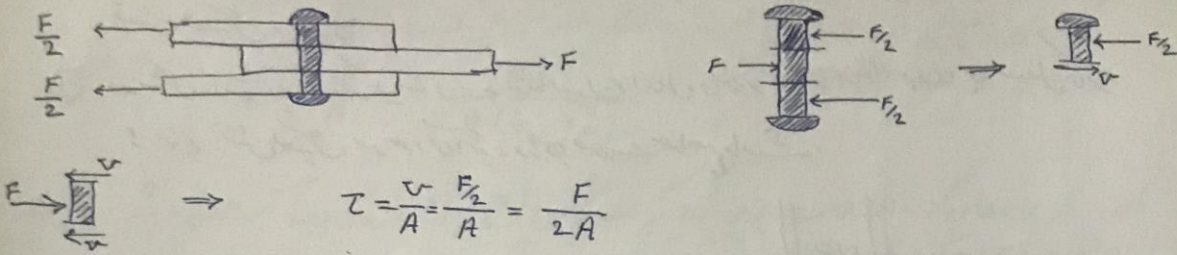 F/2
F
F/2
F/2
F
F/2
F/2
v
F
v
v
⇒ τ = v/A = F/2/A = F/2A